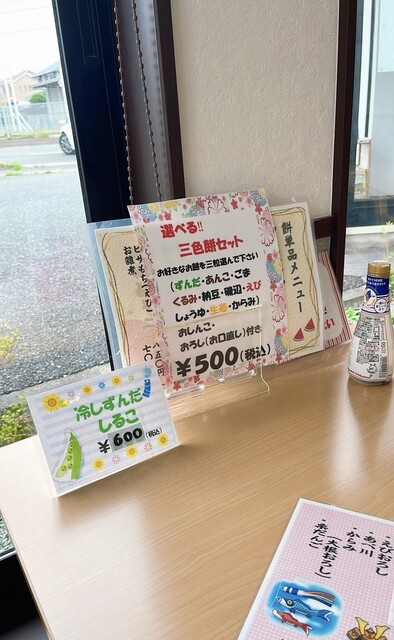 選べる!!
三色餅セット
お好きなお餅を三粒選んで下さい
(ずんだ・あんこ・ごま
くるみ・納豆・磯辺・えび
しょうゆ・生姜・からみ)
おしんこ・
おろし(お口直し)付き
¥500(税込)
餅単品メニュー
ピザもち(えび) 八五〇円
お雑煮 七〇
冷しずんだ
しるこ
¥600(税込)
・えびおろし
・あべ川
・からみ
(大根おろし)
・糸だんご